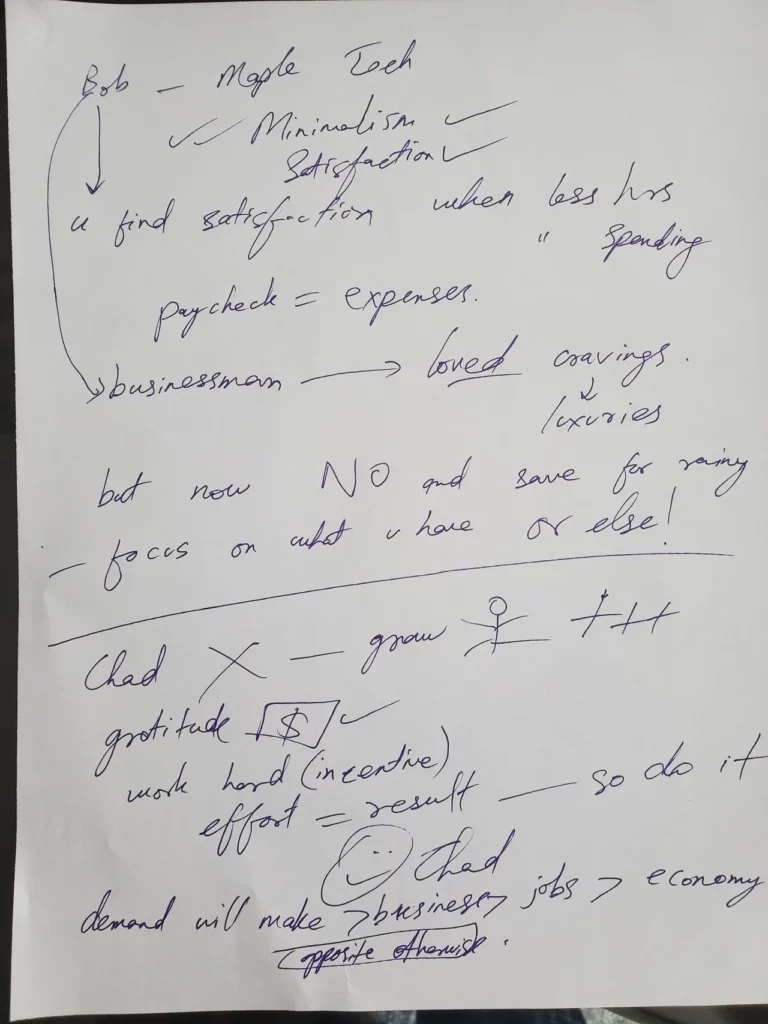 Bob - Maple Tech
Minimalism
Satisfaction
u find satisfaction when less hrs
" spending
paycheck = expenses.
businessman → loved cravings.
luxuries
but now NO and save for rainy
- focus on what u have or else!
Chad X - grow
gratitude $
work hard (incentive)
effort = result - so do it
Chad
demand will make > business > jobs > economy
opposite otherwise.